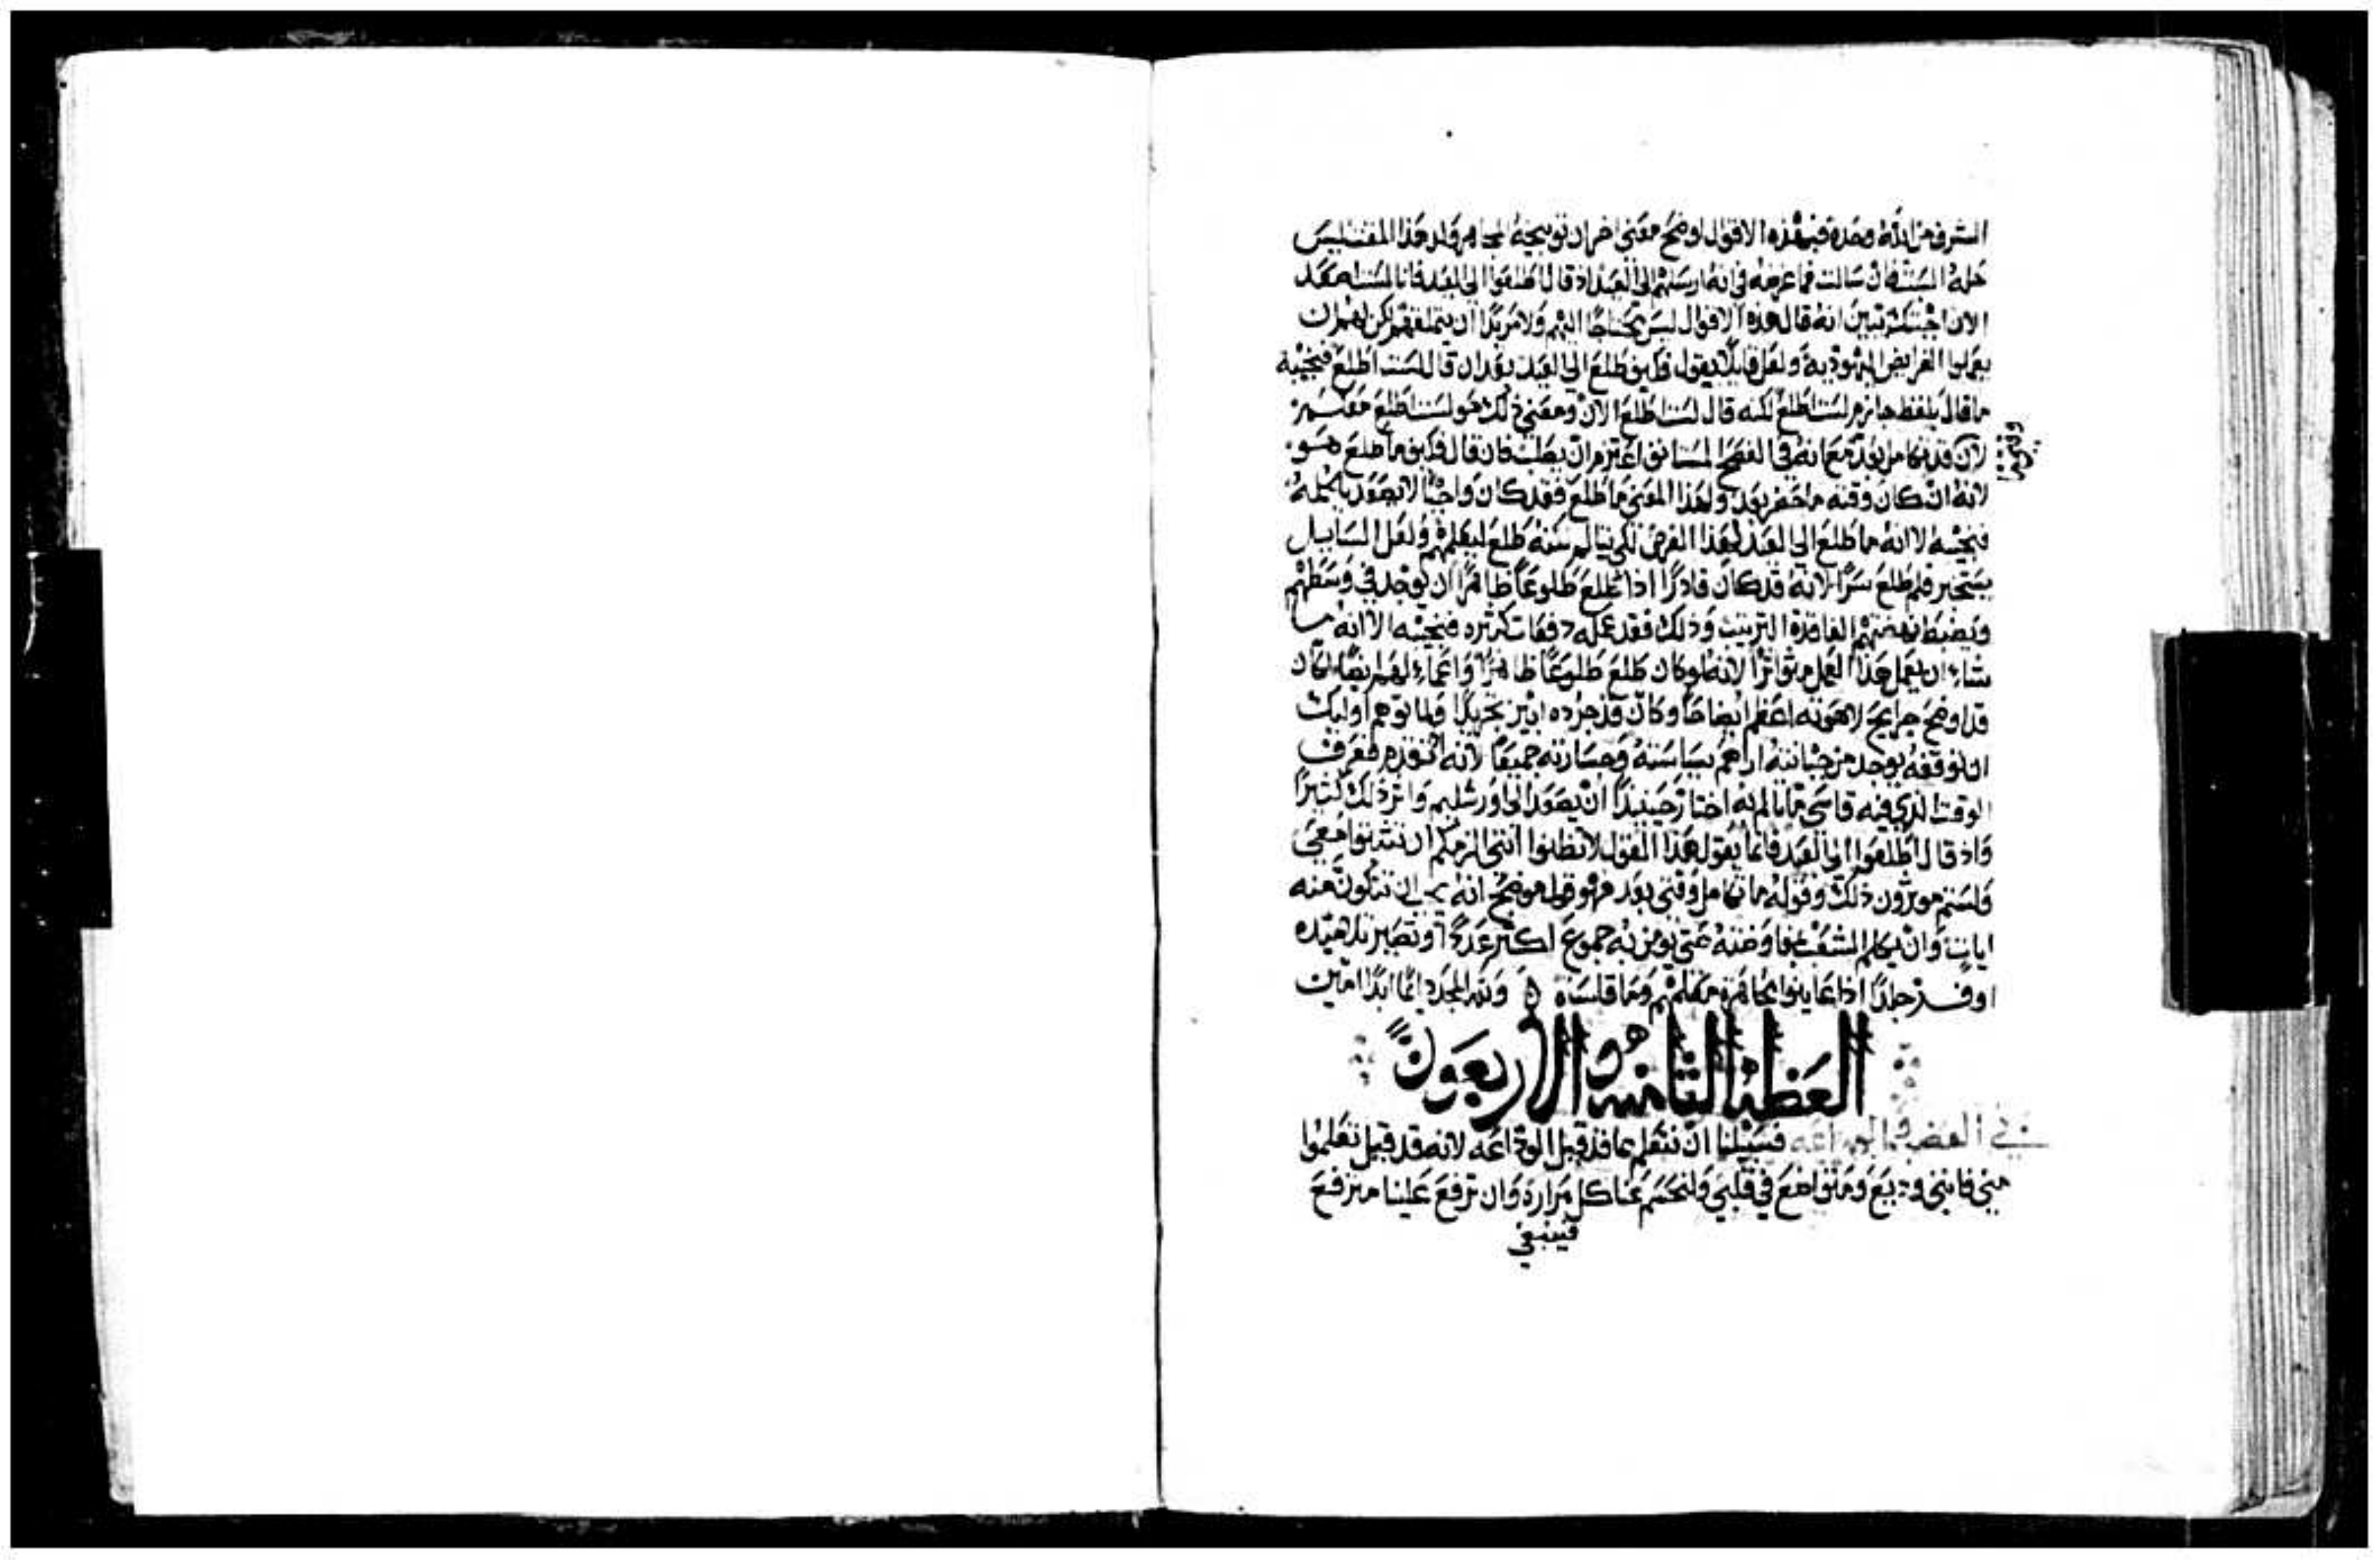 الشرف من الله وحده فبهذه الاقوال اوضح معنى اخر ان توبيخه
حله السبت فان سالت فما غرضه في انه ارسلهم الى العيد اذ قال اطلعوا الى العيد فانا لست اصعد
الان اجبتك تبين انه قال هذه الاقوال ليس محتاجا اليهم ولا مريدا ان يتملقهم لكن
يعملوا الفرايض اليهودية ولعل قايلا يقول فكيف طلع الى العيد بعد ان قال لست اطلع فنجيبه
ما قال بلفظ جازم لست اطلع لكنه قال لست اطلع الان ومعنى ذلك هو لست اطلع معكم
لان وقتي ما كمل بعد مع انه في الفصح اعتزم ان يصلب فان قال فكيف ما طلع هو
لانه ان كان وقته ما حضر بعد ولهذا المعنى ما طلع فقد كان واجبا الا يصعد بالجملة
فنجيبه الا انه ما طلع الى العيد لهذا الغرض لكي يتالم لكنه طلع ليعلمهم ولعل السايل
يستخبر فلم طلع سرا لانه قد كان قادرا اذا طلع طلوعا ظاهرا ان يوجد في وسطهم
ويضبط نهضتهم الفاقدة الترتيب وذلك فقد عمله دفعات كثيره فنجيبه الا انه ما
شاء ان يعمل هذا العمل متواترا لانه لو كان طلع طلوعا ظاهرا واعماهم ايضا لكان
قد اوضح لاهوته اعظم ايضاحا وكان قد جرده ابين تجريدا ولما توهم اوليك
ان توقفه يوجد من جبانته اراهم بسالته وجسارته جميعا
الوقت الذي فيه قاسى ما تالم به اختار حينيذ ان يصعد الى اورشليم واثر ذلك كثيرا
واذ قال اطلعوا الى العيد فانما يقول هذا القول لا تظنوا انني الزمكم ان تثبتوا معي
ولستم موثرون ذلك وقوله ما كمل وقتي بعد فهو قول موضح انه يجب ان تتكون منه
ايات وان يكلم الشعب بمفاوضته حتى يومن به جموع اكثر عددا وتصير تلاميذه
اوفر جلدا اذا عاينوا مجاهرة معلمهم وما قاساه ولله المجد دايما ابدا امين
العظة الثامنة والاربعون
في الغضب فسبيلنا ان نتكلم عما قد قبل الوداعه لانه قد قيل تعلموا
مني فانني وديع ومتواضع في قلبي ولنحسم عنا كل مرارة وان ترفع علينا مترفع
فينبغي